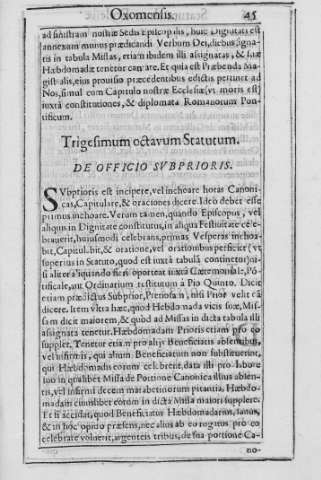 Oxomensis. 45
ad sinistram nostræ Sedis Episcopalis, huic Dignitati est
annexum munus prædicandi Verbum Dei, diebus
tis in tabula Missas, etiam ibidem illi assignatas, & suæ
Hæbdomadæ tenetur cantare. Et quia est Præbenda Ma-
gistralis, eius prouisio præcedentibus edictis pertinet ad
Nos, simul cum Capitulo nostræ Ecclesiæ (vt moris est)
iuxta constitutiones, & diplomata Romanorum Pon-
tificum.
Trigesimum octavum Statutum.
DE OFFICIO SVBPRIORIS.
SVbprioris est incipere, vel inchoare horas Canoni-
cas, Capitulare, & oraciones dicere. Ideò debet esse
primus inchoare. Verum tamen, quando Episcopus, vel
aliquis in Dignitate constitutus, in aliqua Festiuitate ce-
brauerit, huiusmodi celebrans, primas Vesperas inchoa-
bit, Capitulabit, & oratione, vel orationibus perficiet (vt
superius in Statuto, quod est iuxtà tabulã continetur) ni-
si aliter aliquando fieri oporteat iuxtà Cæremoniale, Põ-
tificale, aut Ordinarium restitutum à Pio Quinto. Dicit
etiam prædictus Subprior, Pretiosam, nisi Prior velit eã
dicere. Item vltra hæc, quod Hebdomada vicis suæ, Mis-
sam dicit maiorem, & quòd ad Missas in dicta tabula illi
assignata tenetur. Hæbdomadam Prioris etiam pro eo
supplet. Tenetur etiam pro alijs Beneficiatis absentibus,
vel infirmis, qui alium Beneficiatum non substituerint,
qui Hæbdomadis eorum celebrent, data illi pro labore
suo in qualibet Missa de Portione Canonica illius absen-
tis, vel infirmi decem marabetinorum pitantia. Hæbdo-
madam cuiuslibet eorum in dicta Missa maiori supplere.
Et si accidat, quod Beneficiatus Hæbdomadarius, sanus,
& in hoc opido præsens, nec alius ab eo rogatus pro eo
celebrare voluerit, argenteis tribus, de sua portione Ca-
no-